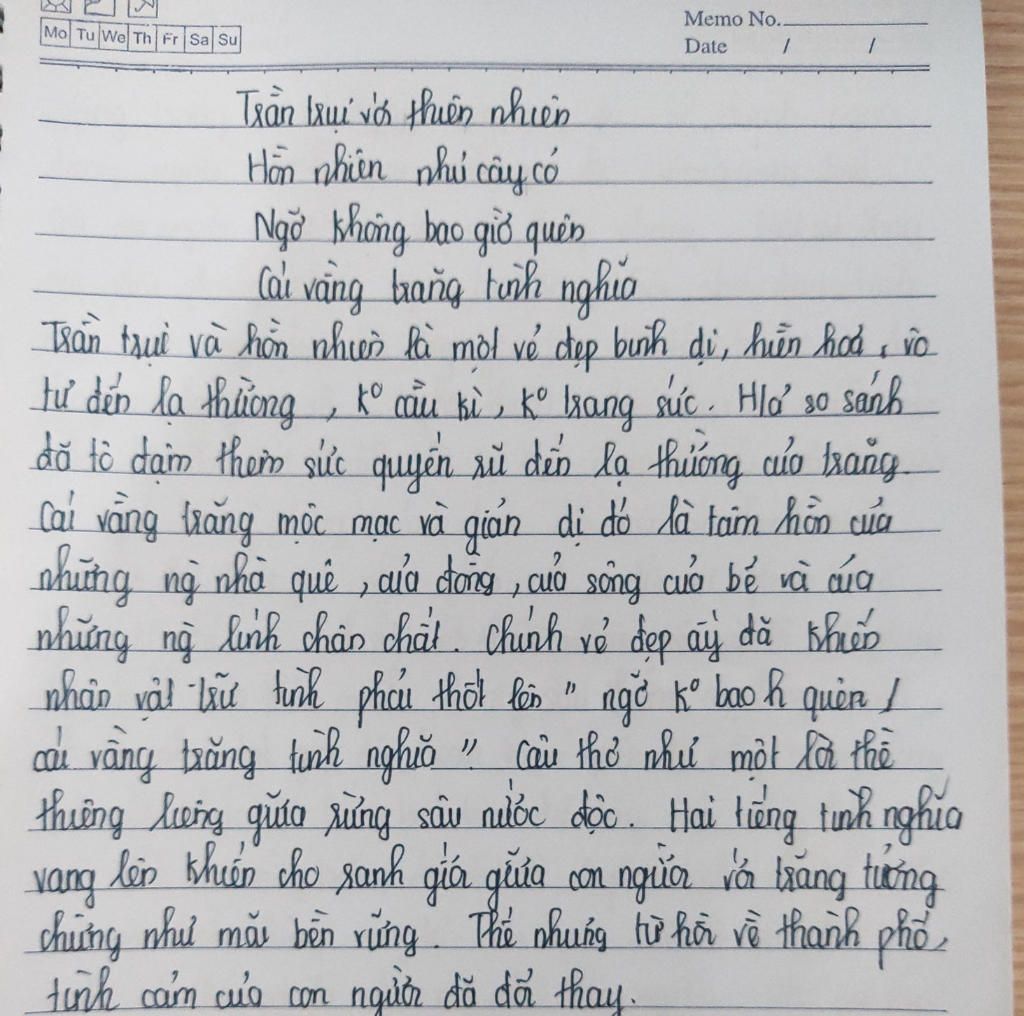 Mo Tu We Th Fr Sa Su
Memo No.
Date / /
Trần trụi với thiên nhiên
Hồn nhiên như cây cỏ
Ngỡ không bao giờ quên
Cái vầng trăng tình nghĩa
Trần trụi và hồn nhiên là một vẻ đẹp bình dị, hiền hoà, vô
tư đến lạ thường, k° cầu kì, k° trang sức. H/ả so sánh
đã tô đậm thêm sức quyến rũ đến lạ thường của trăng.
Cái vầng trăng mộc mạc và giản dị đó là tâm hồn của
những ng` nhà quê, của đồng, của sông của bể và của
những ng` lính chân chất. Chính vẻ đẹp ấy đã khiến
nhân vật trữ tình phải thốt lên " ngỡ k° bao h quên /
cái vầng trăng tình nghĩa " Câu thơ như một lời thề
thiêng liêng giữa rừng sâu nước độc. Hai tiếng tình nghĩa
vang lên khiến cho ranh giới giữa con người với trăng tưởng
chừng như mãi bền vững. Thế nhưng từ hồi về thành phố,
tình cảm của con người đã đổi thay.